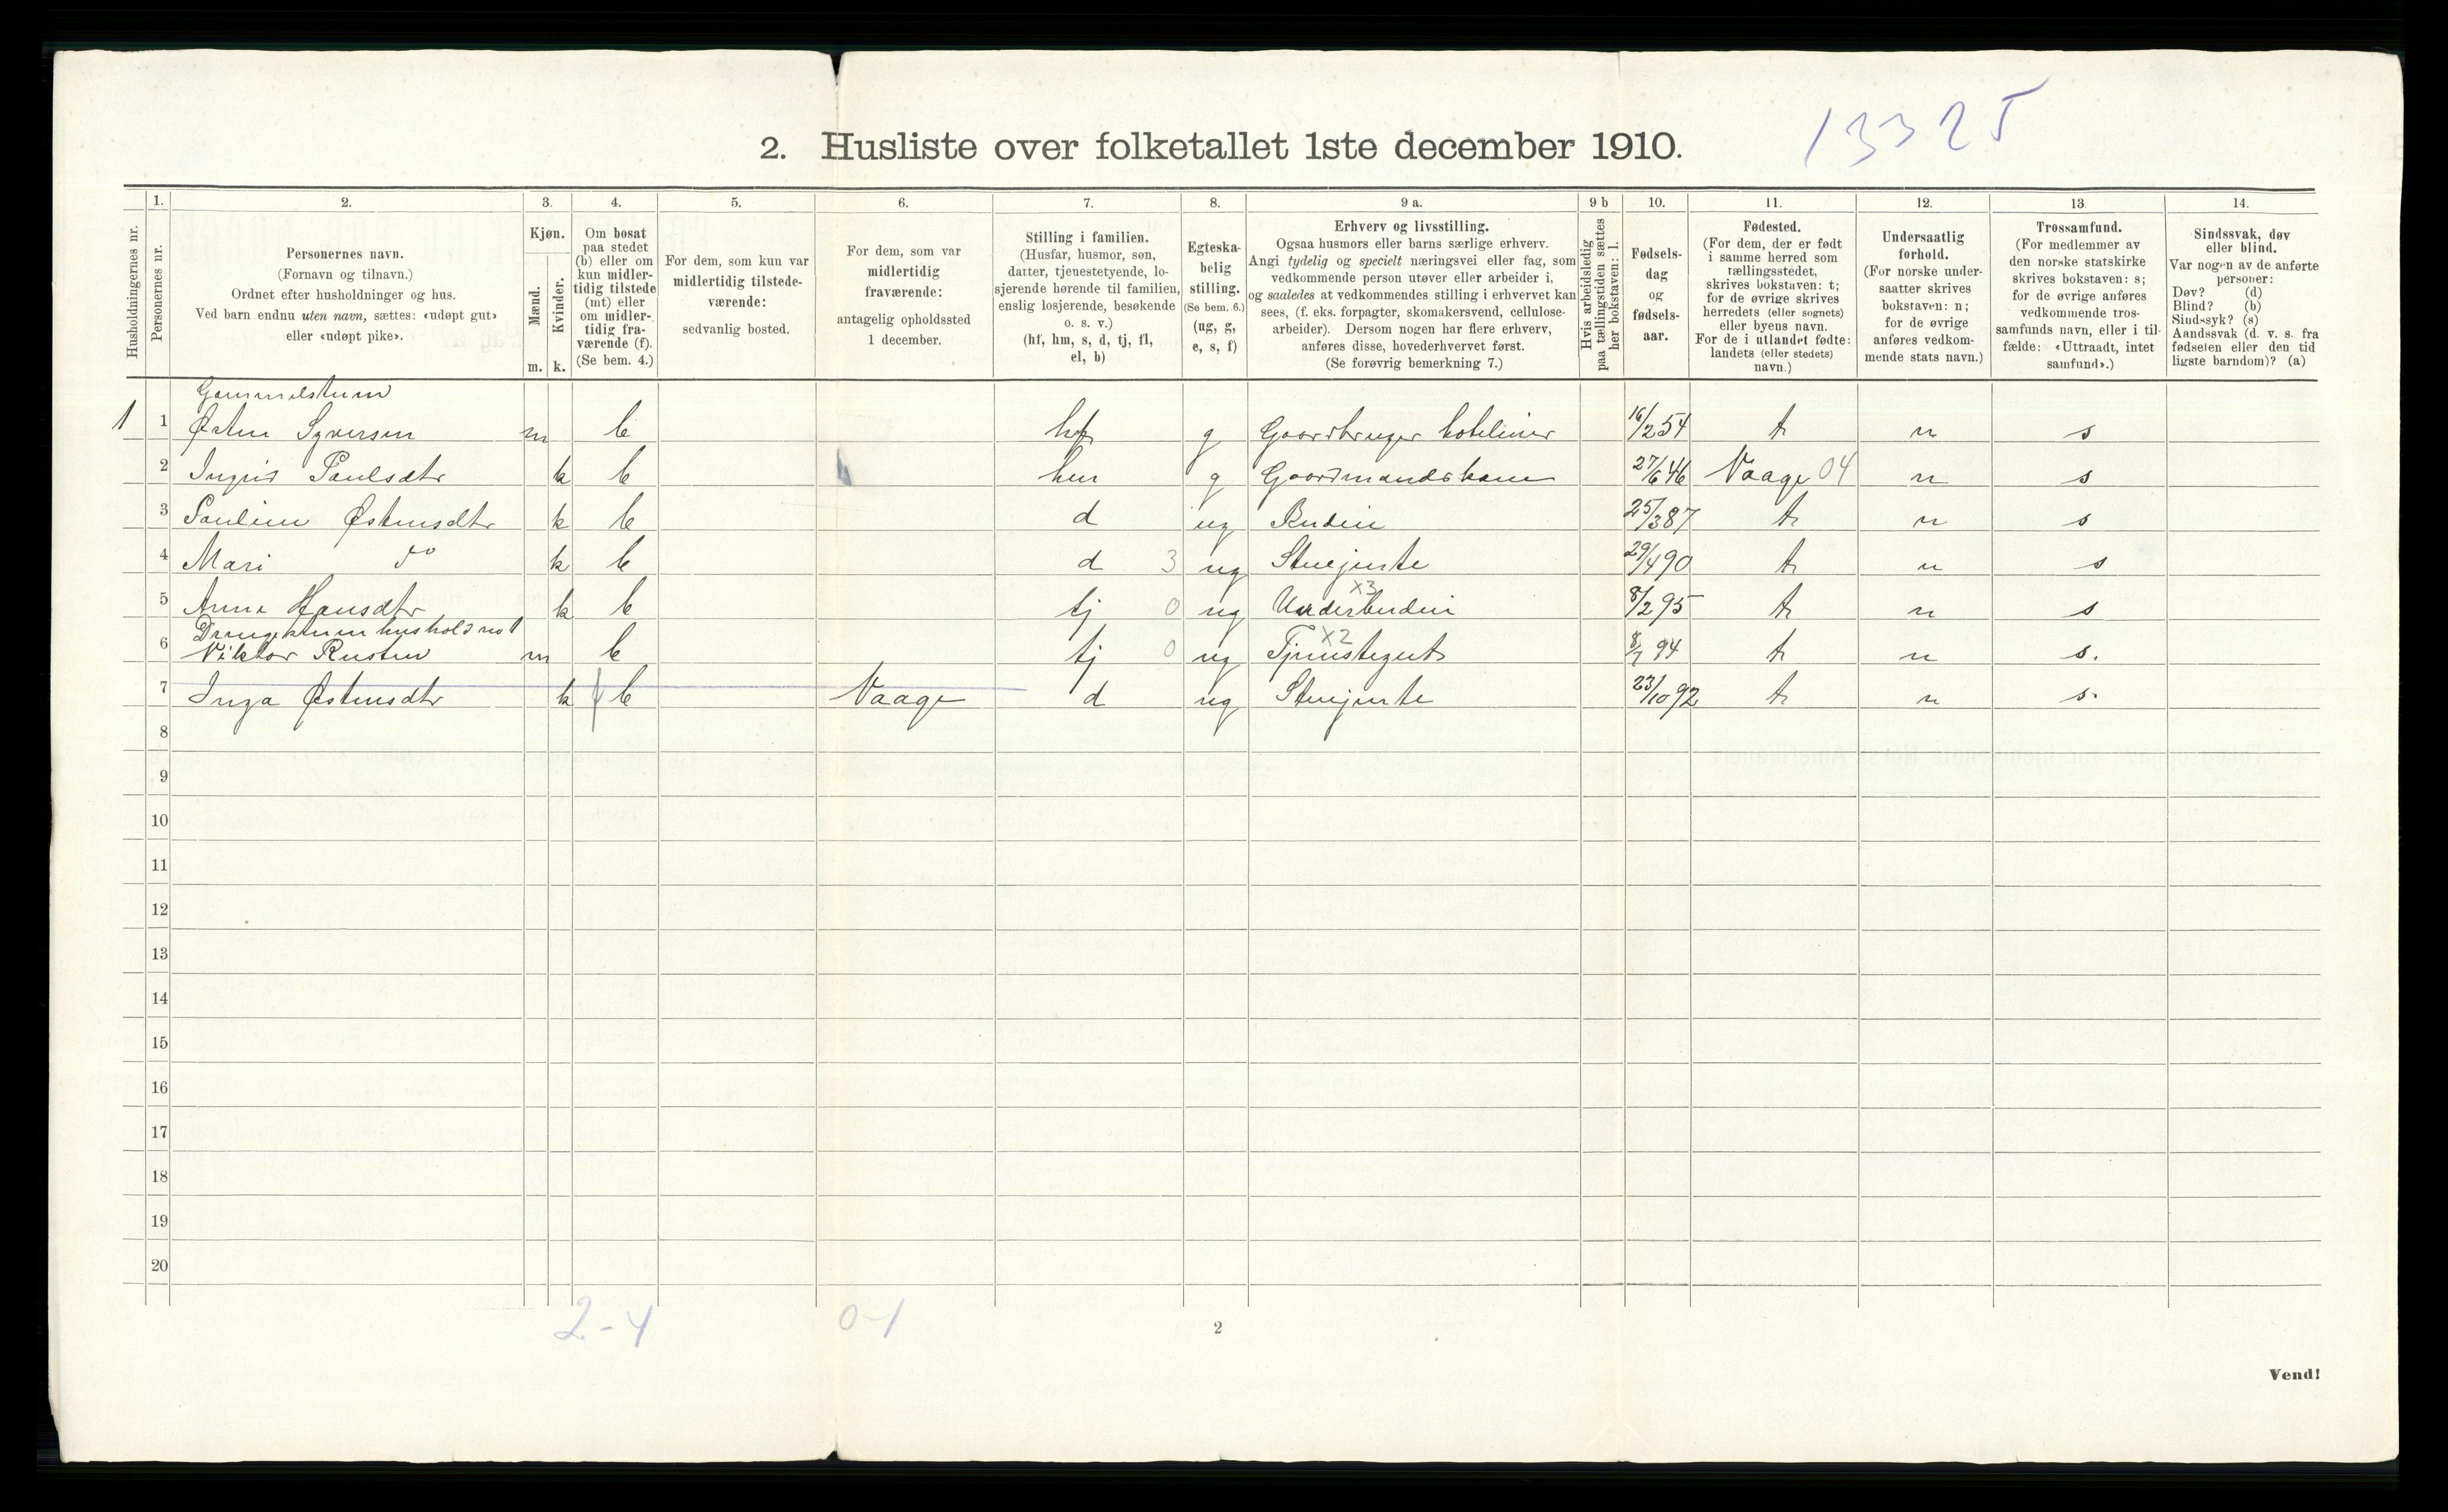 13325
2. Husliste over folketallet 1ste december 1910.
1. 2. 3. 4. 5. 6. 7. 8. 9 a. 9 b 10. 11. 12. 13 14.
Husholdningernes nr.
Personernes nr.
Personernes navn.
(Fornavn og tilnavn.)
Ordnet efter husholdninger og hus.
Ved barn endnu uten navn, sættes: «udøpt gut»
eller «udøpt pike».
Kjøn.
Mænd.
m.
Kvinder.
k.
Om bosat
paa stedet
(b) eller om
kun midler-
tidig tilstede
(mt) eller
om midler-
tidig fra-
værende (f).
(Se bem. 4.)
For dem, som kun var
midlertidig tilstede-
værende:
sedvanlig bosted.
For dem, som var
midlertidig
fraværende:
antagelig opholdssted
1 december.
Stilling i familien.
(Husfar, husmor, søn,
datter, tjenestetyende, lo-
sjerende hørende til familien,
enslig losjerende, besøkende
o. s. v.)
(hf, hm, s, d, tj, fl,
el, b)
Egteska-
belig
stilling.
(Se bem. 6.)
(ug, g,
e, s, f)
Erhverv og livsstilling.
Ogsaa husmors eller barns særlige erhverv.
Angi tydelig og specielt næringsvei eller fag, som
vedkommende person utøver eller arbeider i,
og saaledes at vedkommendes stilling i erhvervet kan
sees, (f. eks. forpagter, skomakersvend, cellulose-
arbeider). Dersom nogen har flere erhverv,
anføres disse, hovederhvervet først.
(Se forøvrig bemerkning 7.)
Hvis arbeidsledig
paa tællingstiden sættes
her bokstaven: l.
Fødsels-
dag
og
fødsels-
aar.
Fødested.
(For dem, der er født
i samme herred som
tællingsstedet,
skrives bokstaven: t;
for de øvrige skrives
herredets (eller sognets)
eller byens navn.
For de i utlandet fødte:
landets (eller stedets)
navn.)
Undersaatlig
forhold.
(For norske under-
saatter skrives
bokstaven: n;
for de øvrige
anføres vedkom-
mende stats navn.)
Trossamfund.
(For medlemmer av
den norske statskirke
skrives bokstaven: s;
for de øvrige anføres
vedkommende tros-
samfunds navn, eller i til-
fælde: «Uttraadt, intet
samfund».)
Sindssvak, døv
eller blind.
Var nogen av de anførte
personer:
Døv? (d)
Blind? (b)
Sindssyk? (s)
Aandssvak (d. v. s. fra
fødselen eller den tid
ligste barndom)? (a)
1 1 Østen Syversen m b hf g 16/2 54 t n s
2 Ingrid Paulsdtr k b hm g Gaardmandskone 27/6 46 Vaage 04 n s
3 Østensdtr k b d ug Budeie 25/3 87 t n s
4 Mari do k b d 3 ug Stuejente 29/4 90 t n s
x3
5 Anne Hansdtr k b tj 0 ug Underbudeie 8/2 95 t n s
x2
6 Viktor Rusten m b tj 0 ug Tjenstegut 94 t n s.
7 Inga Østensdtr k b Vaage d ug Stuejente 23/10 92 t n s.
8
9
10
11
12
13
14
15
16
17
18
19
20
2-4 0-1
2
Vend!